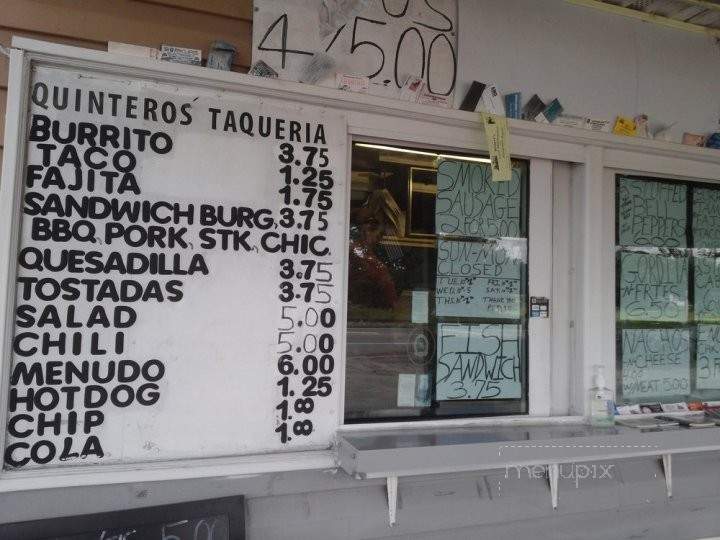 4/5.00
QUINTEROS' TAQUERIA
BURRITO 3.75
TACO 1.25
FAJITA 1.75
SANDWICH BURG, 3.75
BBQ, PORK, STK, CHIC,
QUESADILLA 3.75
TOSTADAS 3.75
SALAD 5.00
CHILI 5.00
MENUDO 6.00
HOTDOG 1.25
CHIP 1.00
COLA 1.00
5.00
SMOKED
SAUSAGE
SUN-MON
CLOSED
THANK YOU
FISH
SANDWICH
3.75
STUFFED
BELL
PEPPERS
GORDITA
FRIES
6.50
NACHOS
W/CHEESE
W/MEAT 5.00
menupix